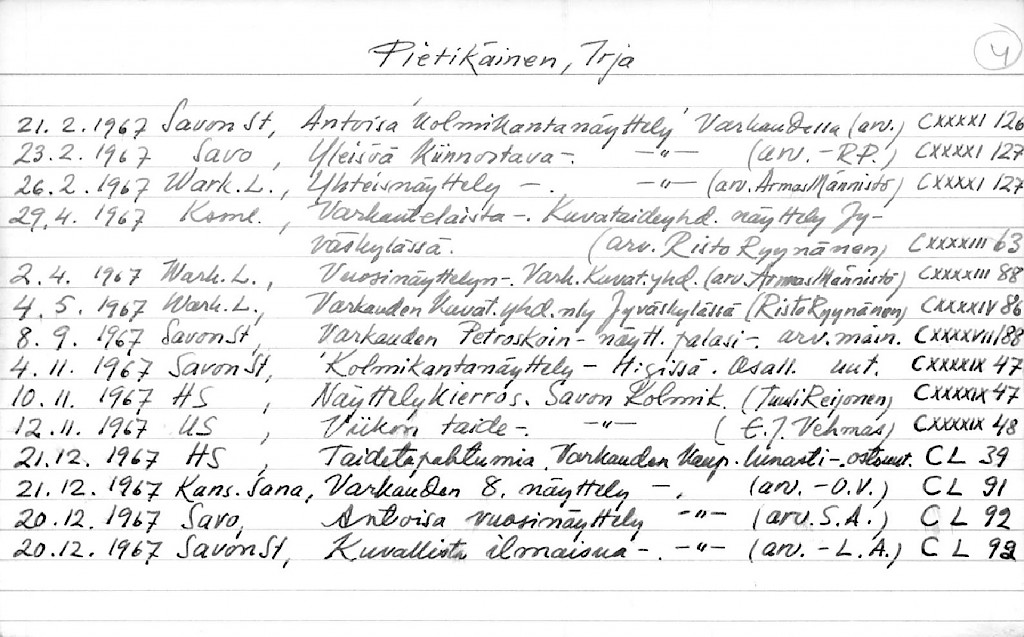 Pietikäinen, Irja
4
21.2.1967 SavonSt, Antoisa 'Kolmikantanäyttely' Varkaudessa (arv.) CXXXXI 126
23.2.1967 Savo, Yleisvä Kiinnostava -. -"- (arv. - R.P.) CXXXXI 127
26.2.1967 Wark.L., Yhteisnäyttely -. -"- (arv. Armas Männistö) CXXXXI 127
29.4.1967 Ksml., Varkautelaista -. Kuvataideyhd. näyttely Jy-
väskylässä. (arv. Risto Ryynänen) CXXXXIII 63
2.4.1967 Wark.L., Vuosinäyttelyn - Vark.Kuvat.yhd. (arv. Armas Männistö) CXXXXIII 88
4.5.1967 Wark.L., Varkauden Kuvat.yhd. nly Jyväskylässä (Risto Ryynänen) CXXXXIV 86
8.9.1967 SavonSt, Varkauden Petroskoin - näytt. palasi -. arv. main. CXXXXVII/88
4.11.1967 SavonSt, 'Kolmikantanäyttely - H:gissä. Osall. uut. CXXXXIX 47
10.11.1967 HS, Näyttelykierros. Savon Kolmik. (Tuuli Reijonen) CXXXXIX 47
12.11.1967 US, Viikon taide -. -"- (E.J. Vehmas) CXXXXIX 48
21.12.1967 HS, Taidetapahtumia, Varkauden Kaup. lunasti -. ostouut. CL 39
21.12.1967 Kans.Sana, Varkauden 8. näyttely -, (arv. - O.V.) CL 91
20.12.1967 Savo, Antoisa vuosinäyttely -"- (arv. S.A.) CL 92
20.12.1967 SavonSt, Kuvallista ilmaisua -. -"- (arv. - L.A.) CL 92